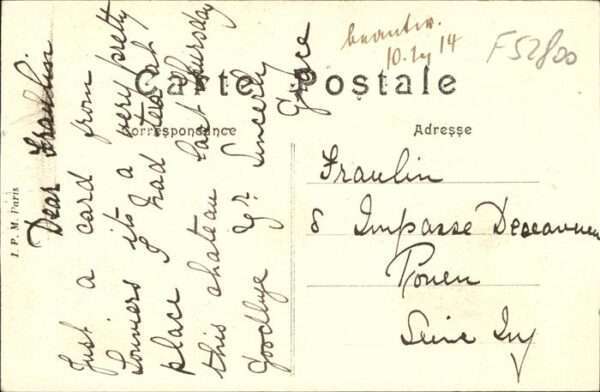 Carte Postale
Correspondance
Adresse
I. P. M. Paris
Dear Fraulin
Just a card from
its a very pretty
place I had tea at
this chateau last Thursday
Goodbye Yr. Sincerely
Grace
Fraulin
8 Impasse
Rouen
Seine Inf
beantw.
14
F52800